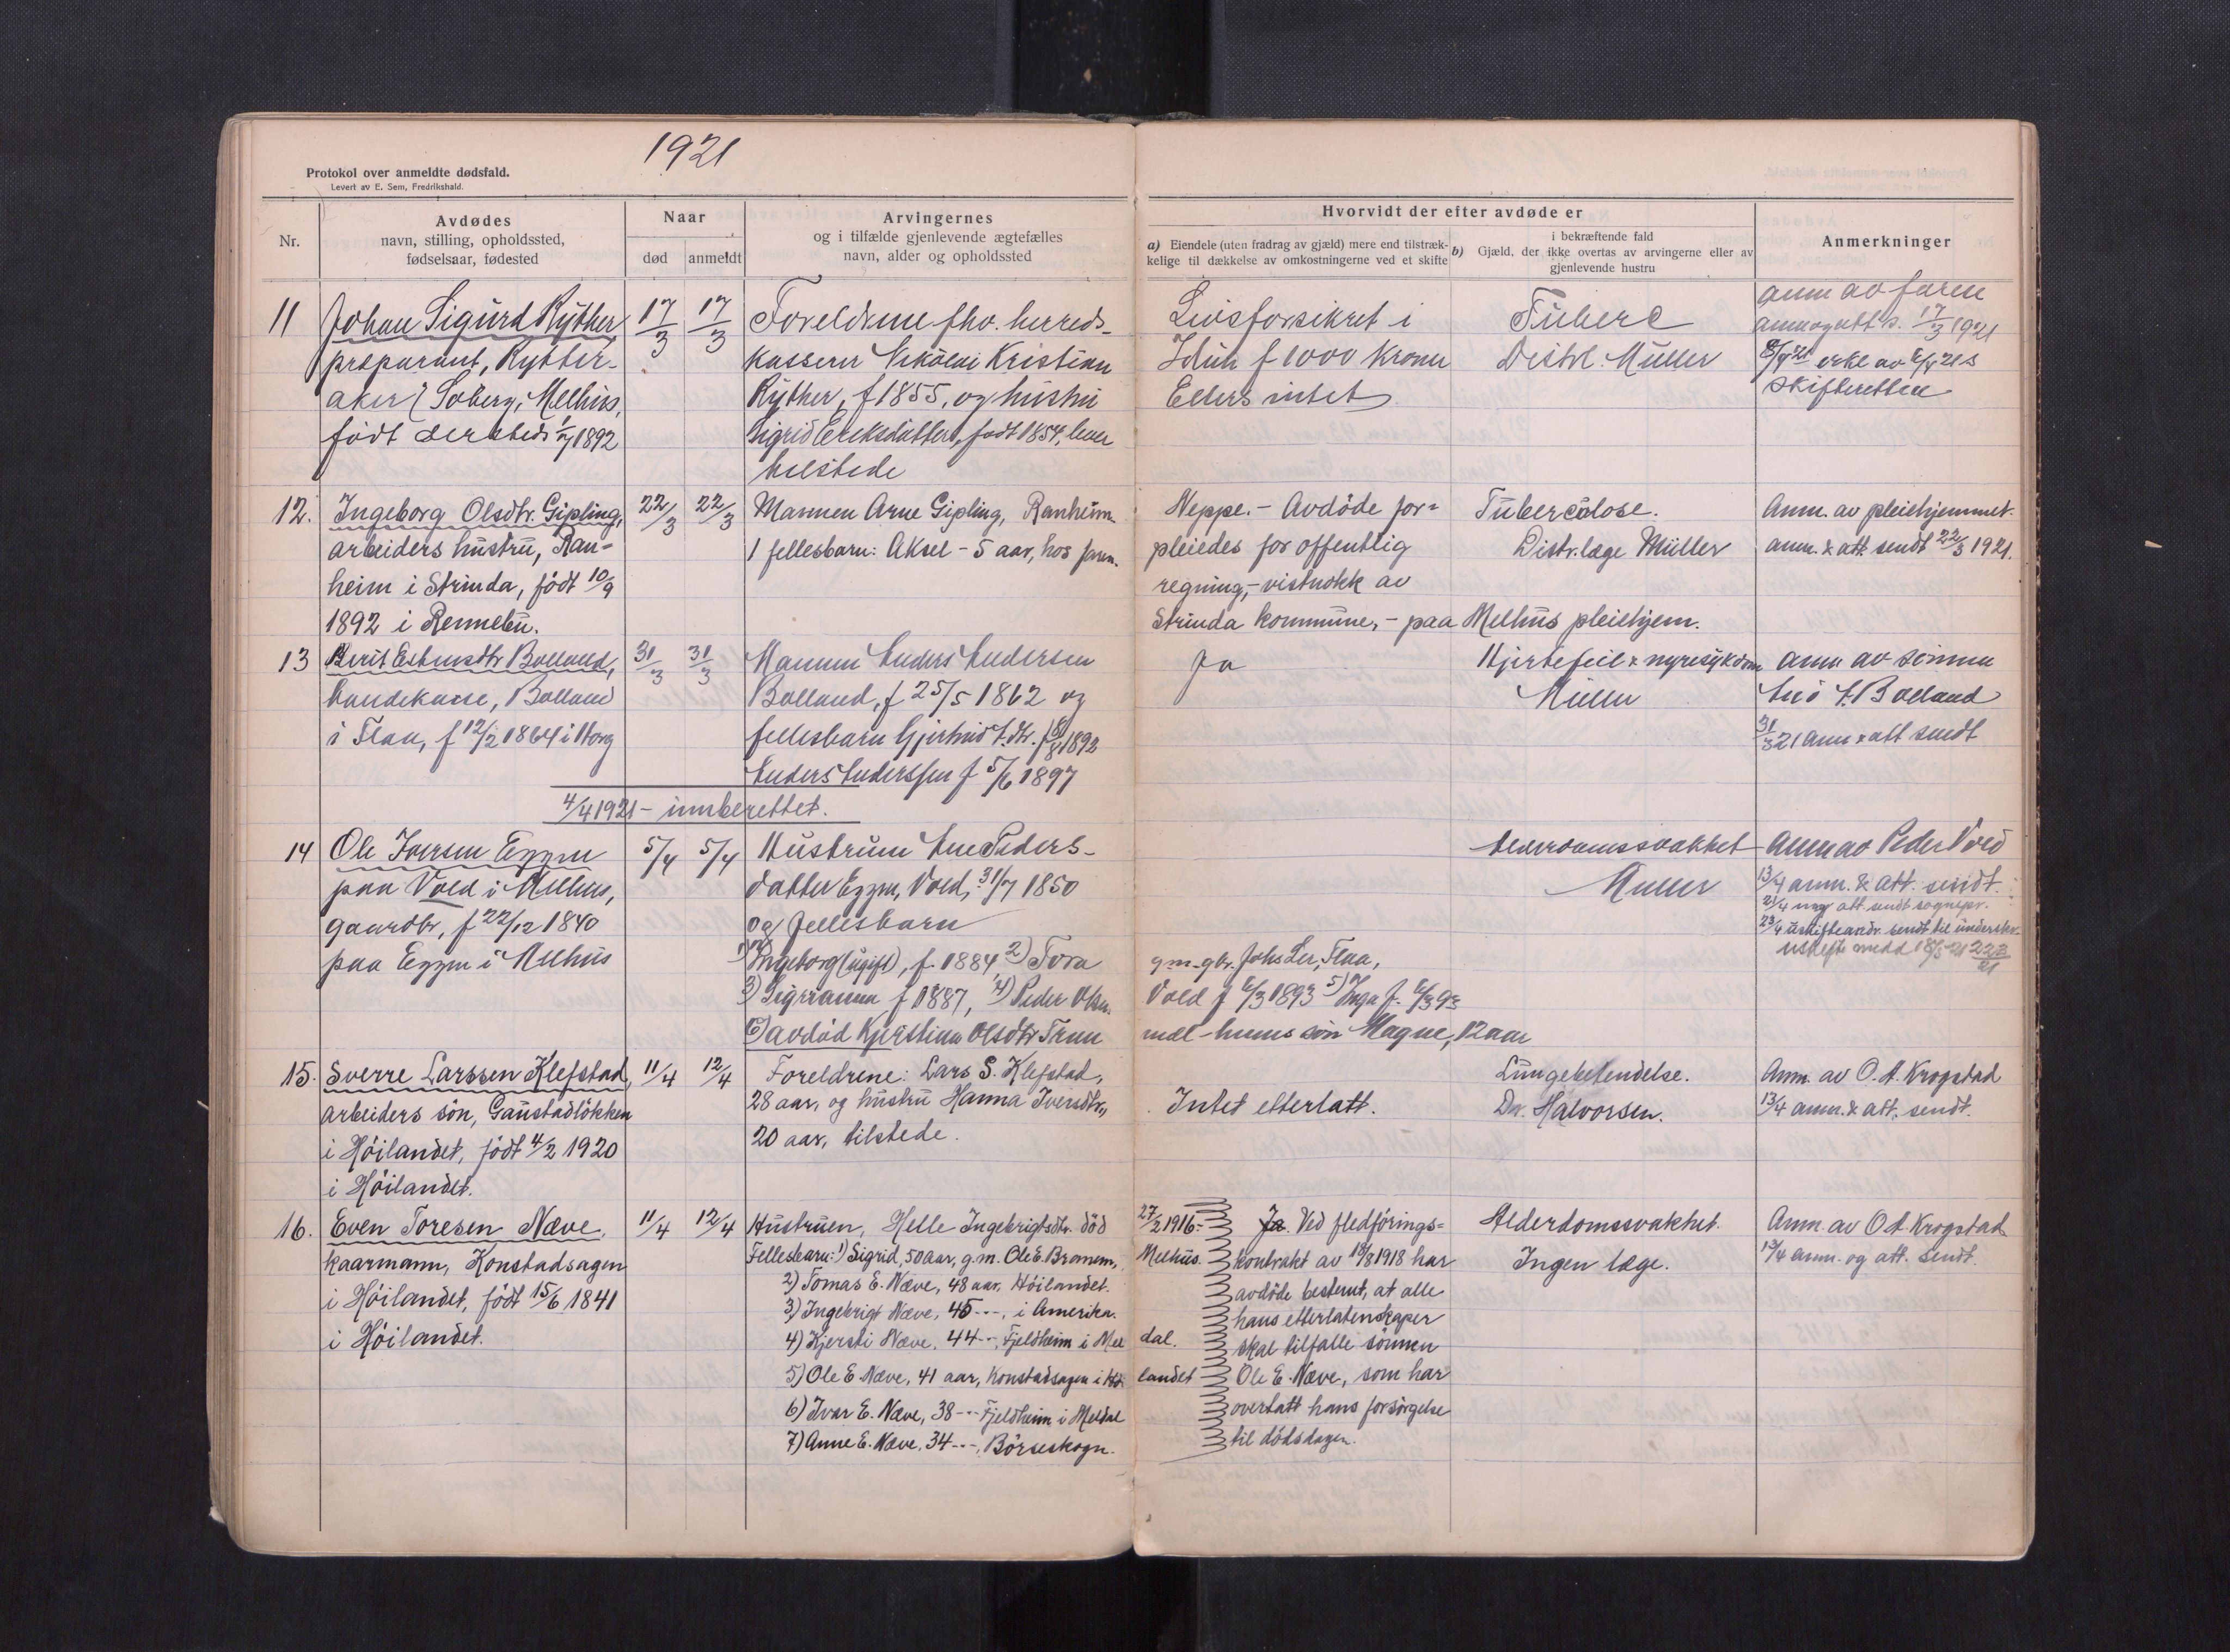 1921
Protokol over anmeldte dødsfald.
Levert av E. Sem, Fredrikshald.
Nr.
Avdødes
navn, stilling, opholdssted,
fødselsaar, fødested
Naar
død
anmeldt
Arvingernes
og i tilfælde gjenlevende ægtefælles
navn, alder og opholdssted
Hvorvidt der efter avdøde er
a) Eiendele (uten fradrag av gjæld) mere end tilstræk-
kelige til dækkelse av omkostningerne ved et skifte
i bekræftende fald
b) Gjæld, der ikke overtas av arvingerne eller av
gjenlevende hustru
Anmerkninger
11
Johan Sigurd Rÿther,
preparant, Rytter-
aker / Søberg, Melhus,
født dersteds 1/7 1892
17/3
17/3
Foreldrene fhv. herreds-
kasserer Nikolai Kristian
Rÿther, f 1855, og hustru
Sigrid Eriksdatter, født 1854, lever
tilstede
Livsforsikret i
Idun f 1000 kroner
Ellers intet
Tuberc
Distrl. Müller
anm av faren
anm og att s. 17/3 1921
skifteretten
12.
Ingeborg Olsdtr. Gipling,
arbeiders hustru, Ran-
heim i Strinda, født 10/9
1892 i Rennebu.
22/3
22/3
Mannen Arne Gipling, Ranheim.
1 fellesbarn: Aksel - 5 aar, hos faren.
Neppe. - Avdøde for-
pleiedes for offentlig
regning, - vistnokk av
Strinda kommune, - paa Melhus pleiehjem.
Tuberculose.
Distr.læge Müller
Anm. av pleiehjemmet.
anm. & att. sendt 22/3 1921.
13
Berit Estensdtr Bolland,
bondekone, Bolland
i Flaa, f 12/2 1864 i Horg
31/3
31/3
Mannen Anders Andersen
Bolland, f 25/5 1862 og
fellesbarn Gjertrud A.dtr. f 6/8 1892
Anders Anderssen f 5/6 1897
Ja
Hjertefeil & nyresykdom
Müller
anm av sønnen
And A. Bolland
31/3 21 anm & att sendt
4/4 1921 - innberettet.
14
Ole Iversen Eggen
paa Vold i Melhus,
gaardbr, f 22/12 1840
paa Eggen i Melhus
5/4
5/4
Hustruen Ane Peders-
datter Eggen, Vold, 31/7 1850
og fellesbarn
1) Ingeborg (ugift), f. 1884, 2) Tora
3) f 1887, 4) Peder Olsen
6) avdød Kjerstina Olsdtr
g.m. gbr. Johs Ler, Flaa,
Vold f 6/3 1893 5) Inga f. 6/3 93
hennes søn Magne, 12 aar
Alderdomssvakhet
Müller
Anm av Peder Vold
13/4 anm. & att. sendt.
21/4 ny att. sendt sognepr.
23/4 uskifteandr. sendt til underskr.
15.
Sverre Larssen Klefstad,
arbeiders søn, Gaustadløkken
i Høilandet, født 4/2 1920
i Høilandet.
11/4
12/4
Foreldrene: Lars S. Klefstad,
28 aar, og hustru Hanna Iversdtr.,
20 aar, tilstede.
Intet etterlatt.
Lungebetendelse.
Dr. Halvorsen.
Anm. av O. A. Krogstad
13/4 anm. & att. sendt.
16.
Even Toresen Næve,
kaarmann, Konstadsagen
i Høilandet, født 15/6 1841
i Høilandet.
11/4
12/4
Hustruen, Helle Ingebrigtsdtr. død 27/2 1916.-
Fellesbarn: 1) Sigrid, 50 aar, g.m. Ole E. Bromem, Melhus.
2) Tomas E. Næve, 48 aar, Høilandet.
3) Ingebrigt Næve, 45 --, i Amerika.
4) Kjersti Næve, 44 --, Fjeldheim i Mel dal.
5) Ole E. Næve, 41 aar, Konstadsagen i Høi landet
6) Ivar E. Næve, 38 --- Fjeldheim i Meldal
7) Anne E. Næve, 34 ---, Børseskogn.
Ja. Ved fledførings-
kontrakt av 18/8 1918 har
avdøde bestemt, at alle
hans etterlatenskaper
skal tilfalle sønnen
Ole E. Næve, som har
overtatt hans forsørgelse
til dødsdagen.
Alderdomssvakhet.
Ingen læge.
Anm. av O. A. Krogstad
13/4 anm. og att. sendt.